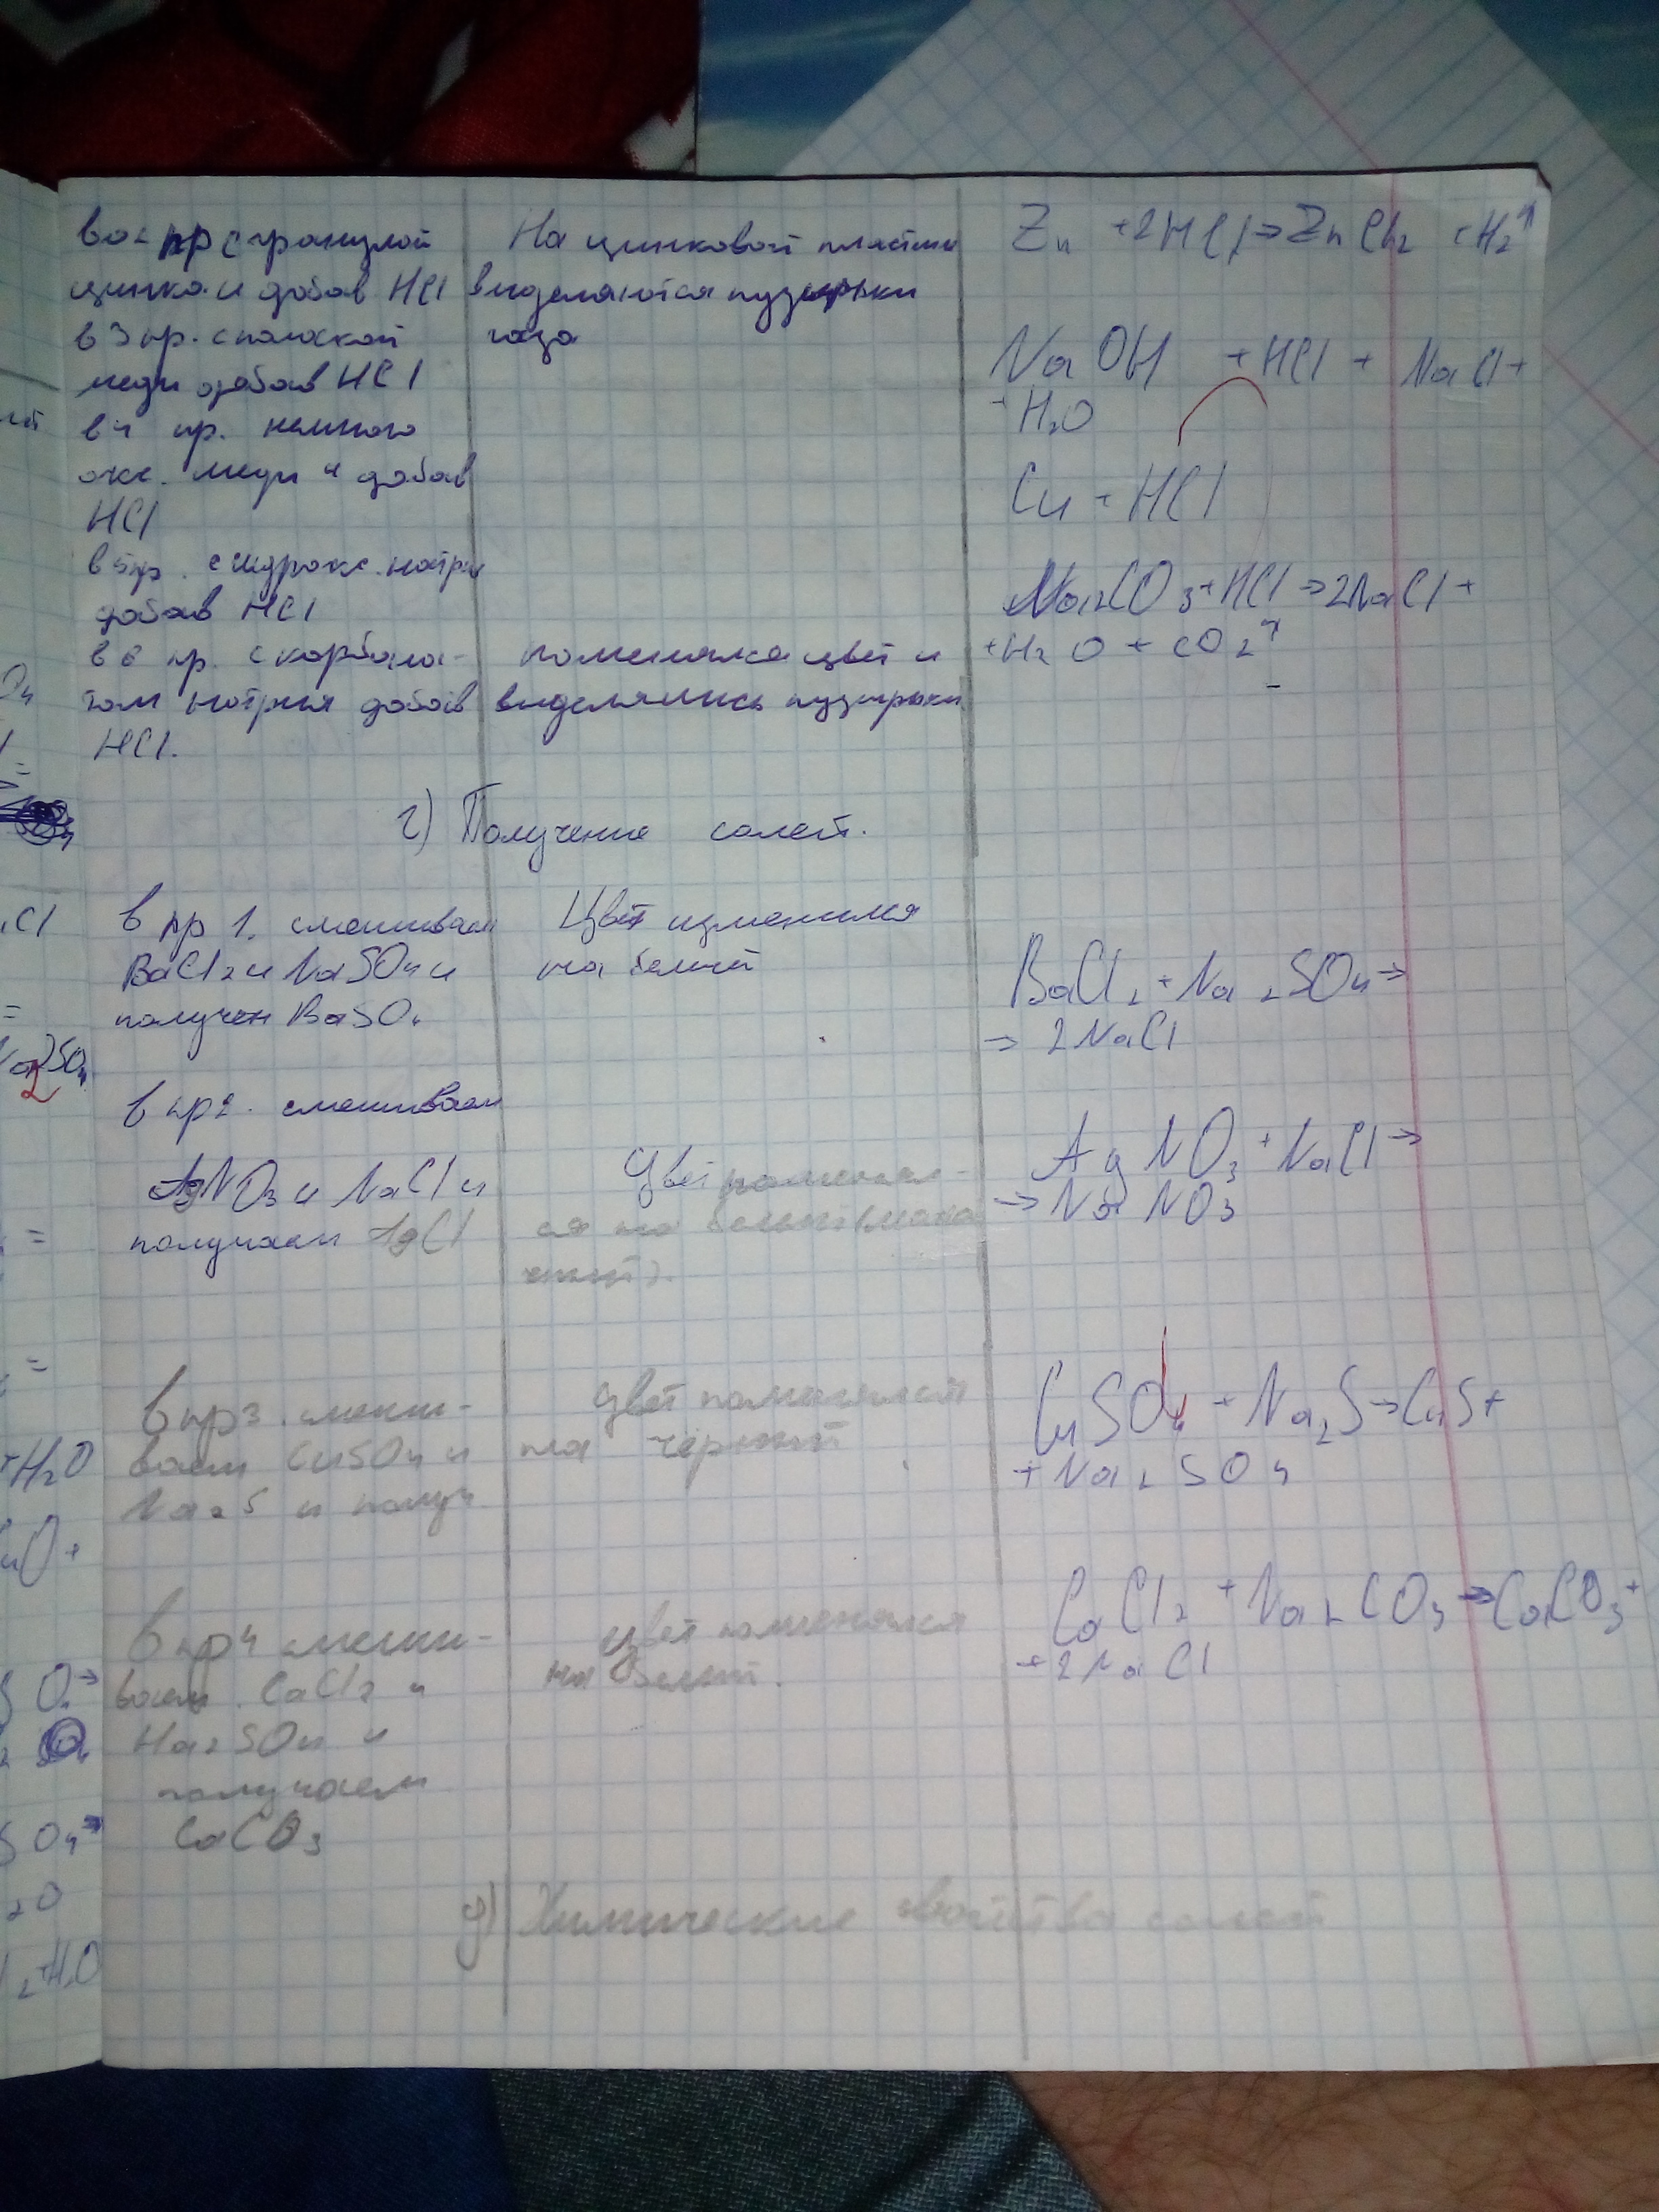 во 2 пр с гранулой
цинка и добав HCl
в 3 пр. с полоской
меди добав HCl
в 4 пр. немного
окс. меди и добав
HCl
в 5 пр. с гидрокс. натри
добав HCl
в 6 пр. с карбона-
том натрия добав
HCl.
На цинковой пластин
выделяются пузырьки
газа
поменялся цвет и
выделялись пузырьки
Zn + 2HCl → ZnCl2 + H2↑
NaOH + HCl + NaCl +
+ H2O
Cu + HCl
Na2CO3 + HCl → 2NaCl +
+ H2O + CO2↑
г) Получение солей.
в пр 1. смешиваем
BaCl2 и NaSO4 и
получен BaSO4
Цвет изменился
на белый
BaCl2 + Na2SO4 →
→ 2NaCl
в пр 2. смешиваем
AgNO3 и NaCl и
получаем AgCl
Цвет поменял-
ся на белый
AgNO3 + NaCl →
→ NaNO3
в пр 3. смеши-
ваем CuSO4 и
Na2S и получ
цвет поменялся
на черный
CuSO4 + Na2S → CuS +
+ Na2SO4
в пр 4 смеши-
ваем CaCl2 и
Na2SO4 и
получаем
CaCO3
цвет поменялся
на белый.
CaCl2 + Na2CO3 → CaCO3 +
+ 2NaCl
д) Химические свойства солей